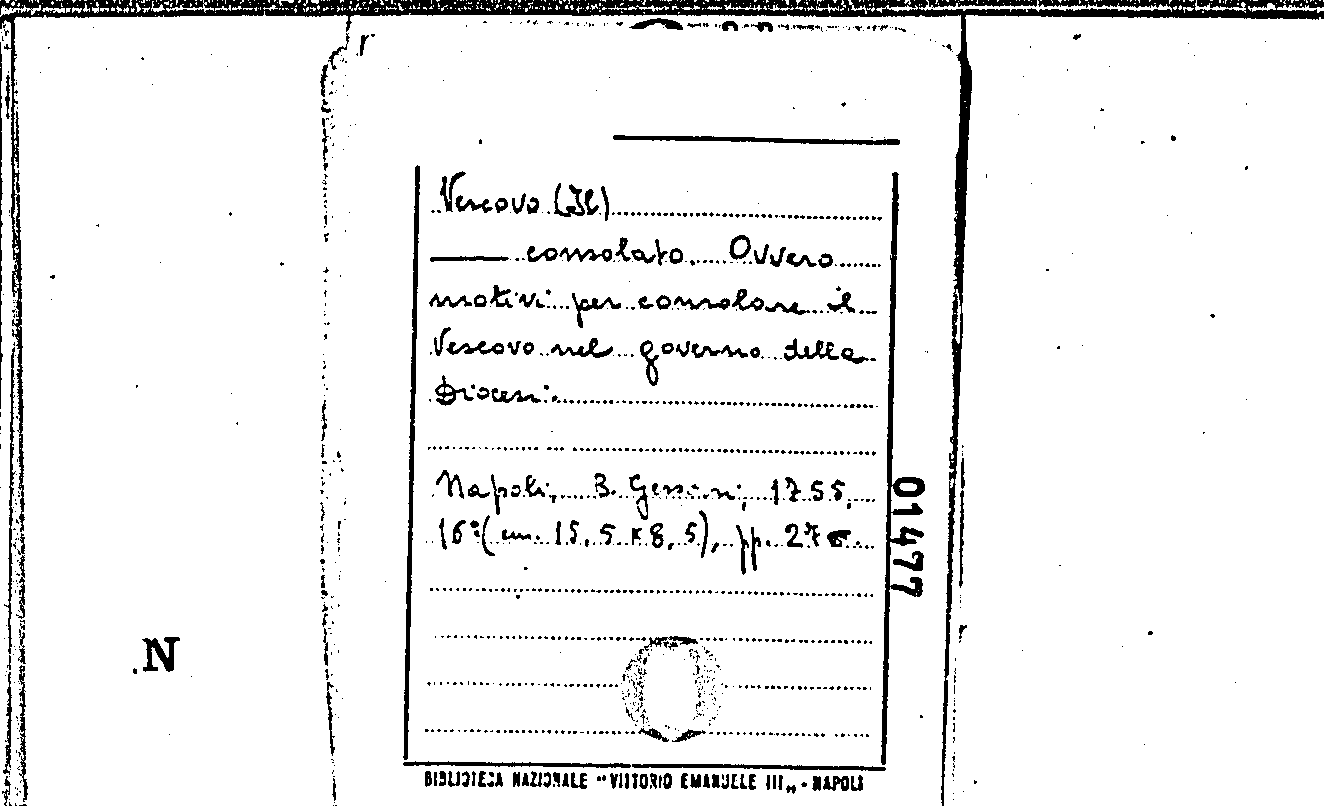 Vescovo (Il)
—— consolato. Ovvero
motivi per consolare il
Vescovo nel governo della
Diocesi.
Napoli, B. Gessari, 1755,
16° (cm. 15,5 x 8,5), pp. 27
01477
N
BIBLIOTECA NAZIONALE "VITTORIO EMANUELE III„ - NAPOLI